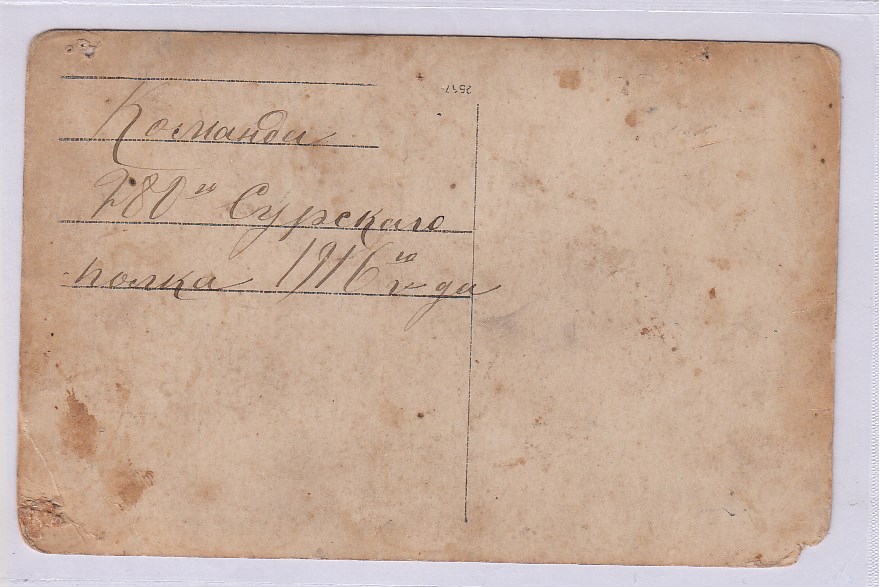 2517
Команди
280го Сурскаго
полка 1916го года